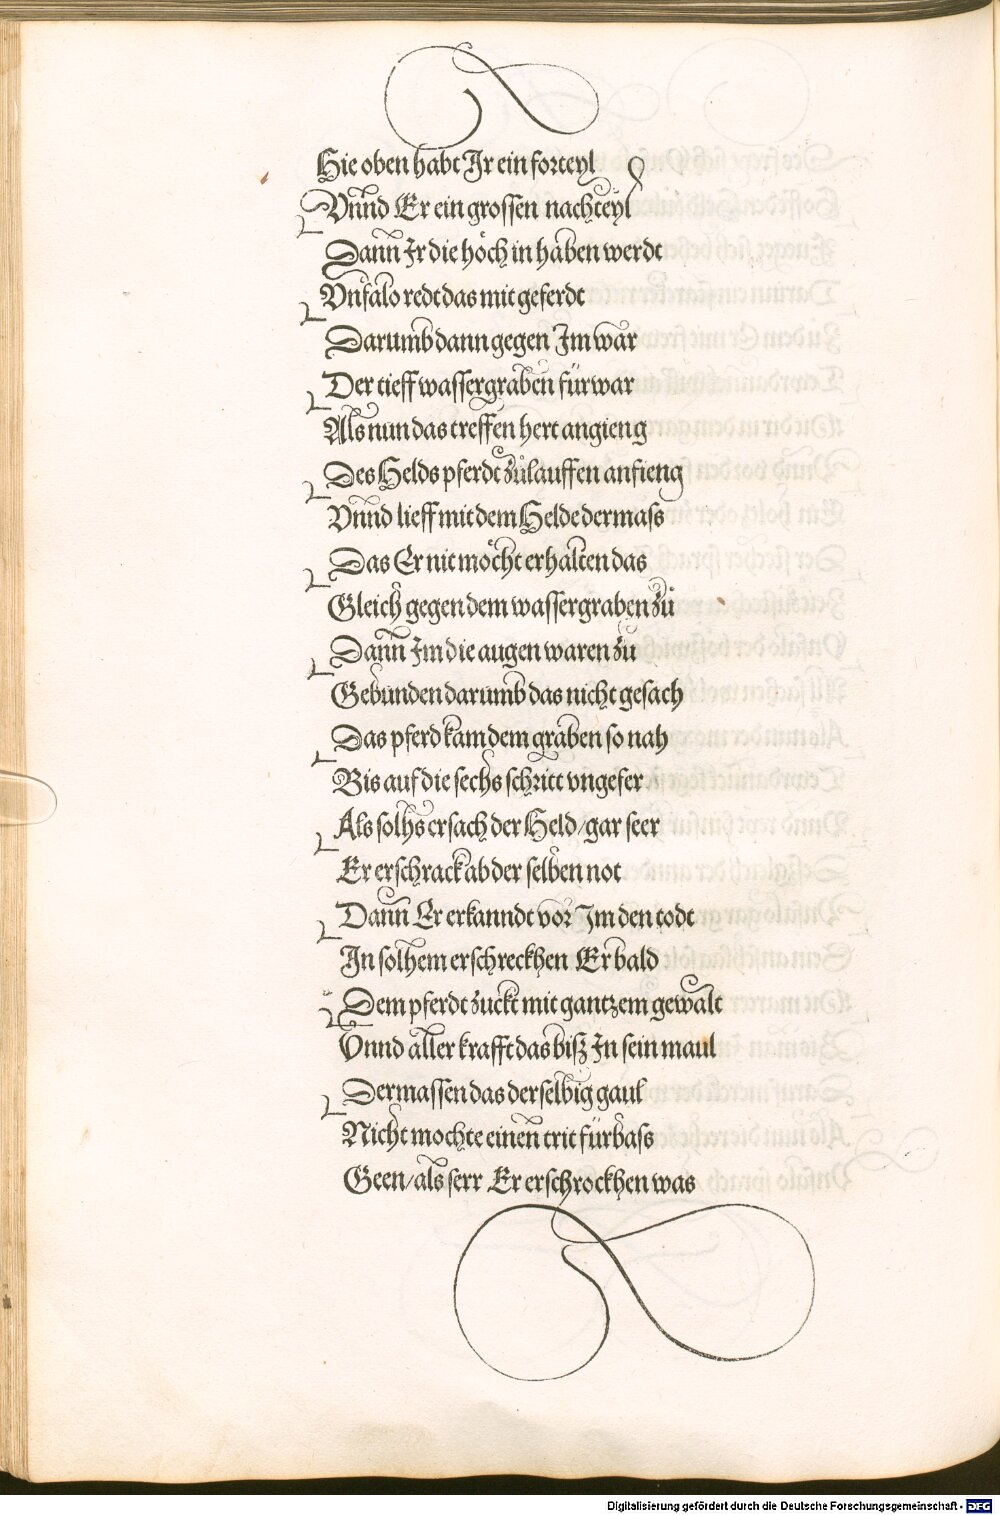 Hie oben habt Ir ein forteyl
Vnnd Er ein grossen nachteyl
Dann Ir die höch in haben werdt
Vnfalo redt das mit geferdt
Darumb dann gegen Im war
Der tieff wassergraben fürwar
Als nun das treffen hert angieng
Des Helds pferdt zůlauffen anfieng
Vnnd lieff mit dem Helde dermass
Das Er nit möcht erhalten das
Gleich gegen dem wassergraben zů
Dann Im die augen waren zů
Gebunden darumb das nicht gesach
Das pferd kam dem graben so nah
Bis auf die sechs schritt vngefer
Als solhs ersach der Held/gar seer
Er erschrack ab der selben not
Dann Er erkanndt vor Im den todt
In solhem erschreckhen Er bald
Dem pferdt zuckt mit gantzem gewalt
Vnnd aller krafft das biß In sein maul
Dermassen das derselbig gaul
Nicht mochte einen trit fürbass
Geen/als serr Er erschrockhen was
Digitalisierung gefördert durch die Deutsche Forschungsgemeinschaft - DFG